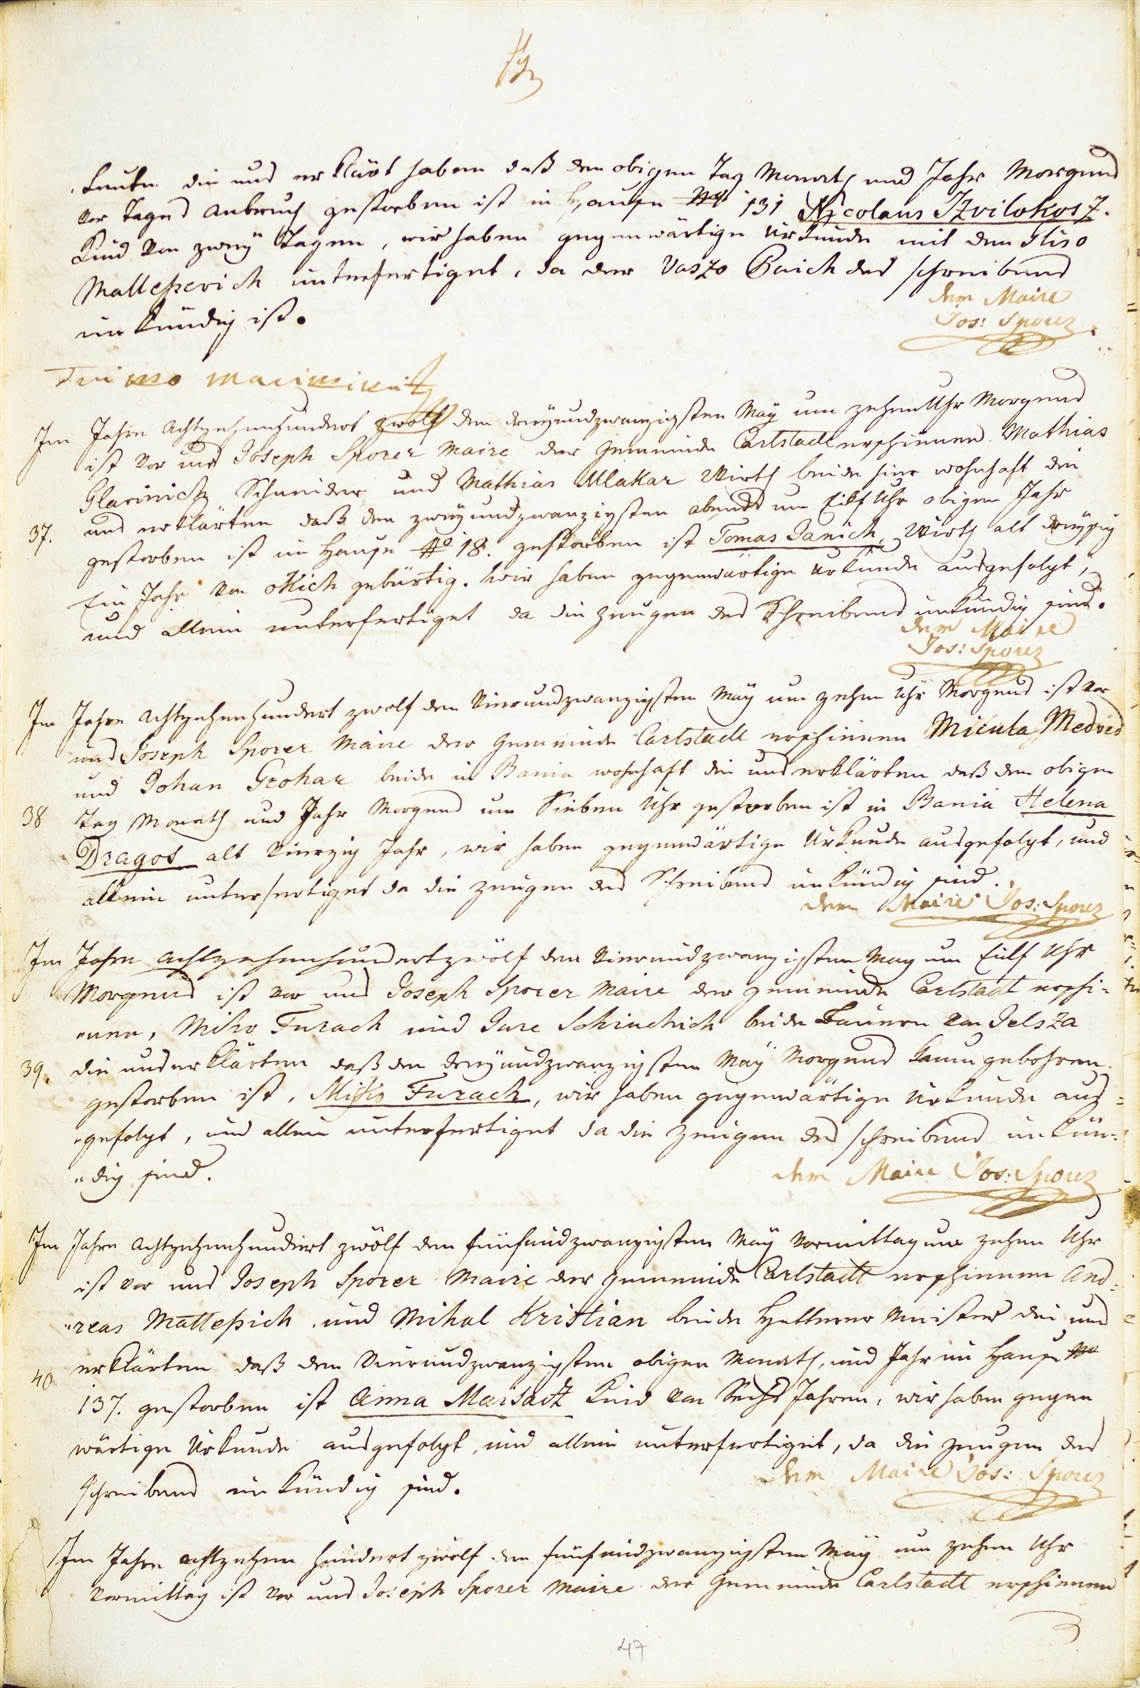 Leute die uns erklärt haben daß den obigen Tag Monath und Jahr Morgens
vor Tages Anbruch gestorben ist in Hause No 131 Nicolaus
Kind von zwey Tagen, wir haben gegenwärtige Urkunde mit dem
Mattessevich unterfertiget, da der Vaszo Baich des schreibens
unkündig ist.
der Maire
Jos: Sporer
Im Jahre Achtzehenhundert zwölf den dreyundzwanzigsten May um zehen Uhr Morgens
ist vor uns Joseph Sporer Maire der Gemeinde Carlstadt erschienen Mathias
Glavinich Schneider und Mathias Mlakar Wirth beide hier wohnhaft die
37. uns erklärten daß den zweyundzwanzigsten abends um Eilf Uhr obigen Jahr
gestorben ist im Hause No 18. gestorben ist Tomas Janich Wirth alt dreyßig
Ein Jahr von gebürtig. Wir haben gegenwärtige Urkunde ausgefolgt,
und allein unterfertiget da die Zeugen des Schreibens unkündig sind.
der Maire
Jos: Sporer
Im Jahre Achtzehenhundert zwölf den Vierundzwanzigsten May um zehen Uhr Morgens ist vor
uns Joseph Sporer Maire der Gemeinde Carlstadt erschienen Micula Medved
und Johan Grohar beide in Bania wohnhaft die uns erklärten daß den obigen
38 Tag Monath und Jahr Morgens um Sieben Uhr gestorben ist in Bania Helena
Dragos alt Vierzig Jahr, wir haben gegenwärtige Urkunde ausgefolgt, und
allein unterfertiget da die Zeugen des Schreibens unkündig sind.
der Maire Jos: Sporer
Im Jahre achtzehenhundertzwölf den Vierundzwanzigsten May um Eilf Uhr
Morgens ist vor uns Joseph Sporer Maire der Gemeinde Carlstadt erschi=
"enen, Miko Furach und Jure Skriachich beide Bauern von Jelsza
39. die uns erklärten daß den dreyundzwanzigsten May Morgens kaum gebohren
gestorben ist, Furach, wir haben gegenwärtige Urkunde aus=
"gefolgt, und allein unterfertiget da die Zeugen des schreibens unkün=
"dig sind.
der Maire Jos: Sporer
Im Jahre Achtzehenhundert zwölf den fünfundzwanzigsten May Vormittag um zehen Uhr
ist vor uns Joseph Sporer Maire der Gemeinde Carlstadt erschienen And=
"reas Mattessich und Mihal Kristian beide Meister die uns
erklärten daß den Vierundzwanzigsten obigen Monath, und Jahr im Hause No
40 137. gestorben ist Anna Kind von Sechs Jahren, wir haben gegen
wärtige Urkunde ausgefolgt, und allein unterfertiget, da die Zeugen des
schreibens unkündig sind.
der Maire Jos: Sporer
Im Jahre achtzehen hundert zwölf den fünfundzwanzigsten May um zehen Uhr
Vormittag ist vor uns Joseph Sporer Maire der Gemeinde Carlstadt erschienen
47